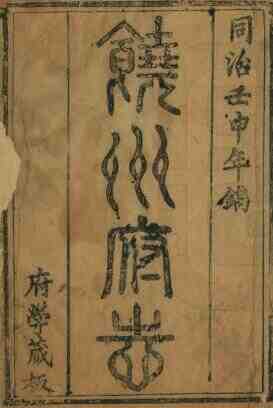 同治壬申年鐫
饒州府志
府學藏板